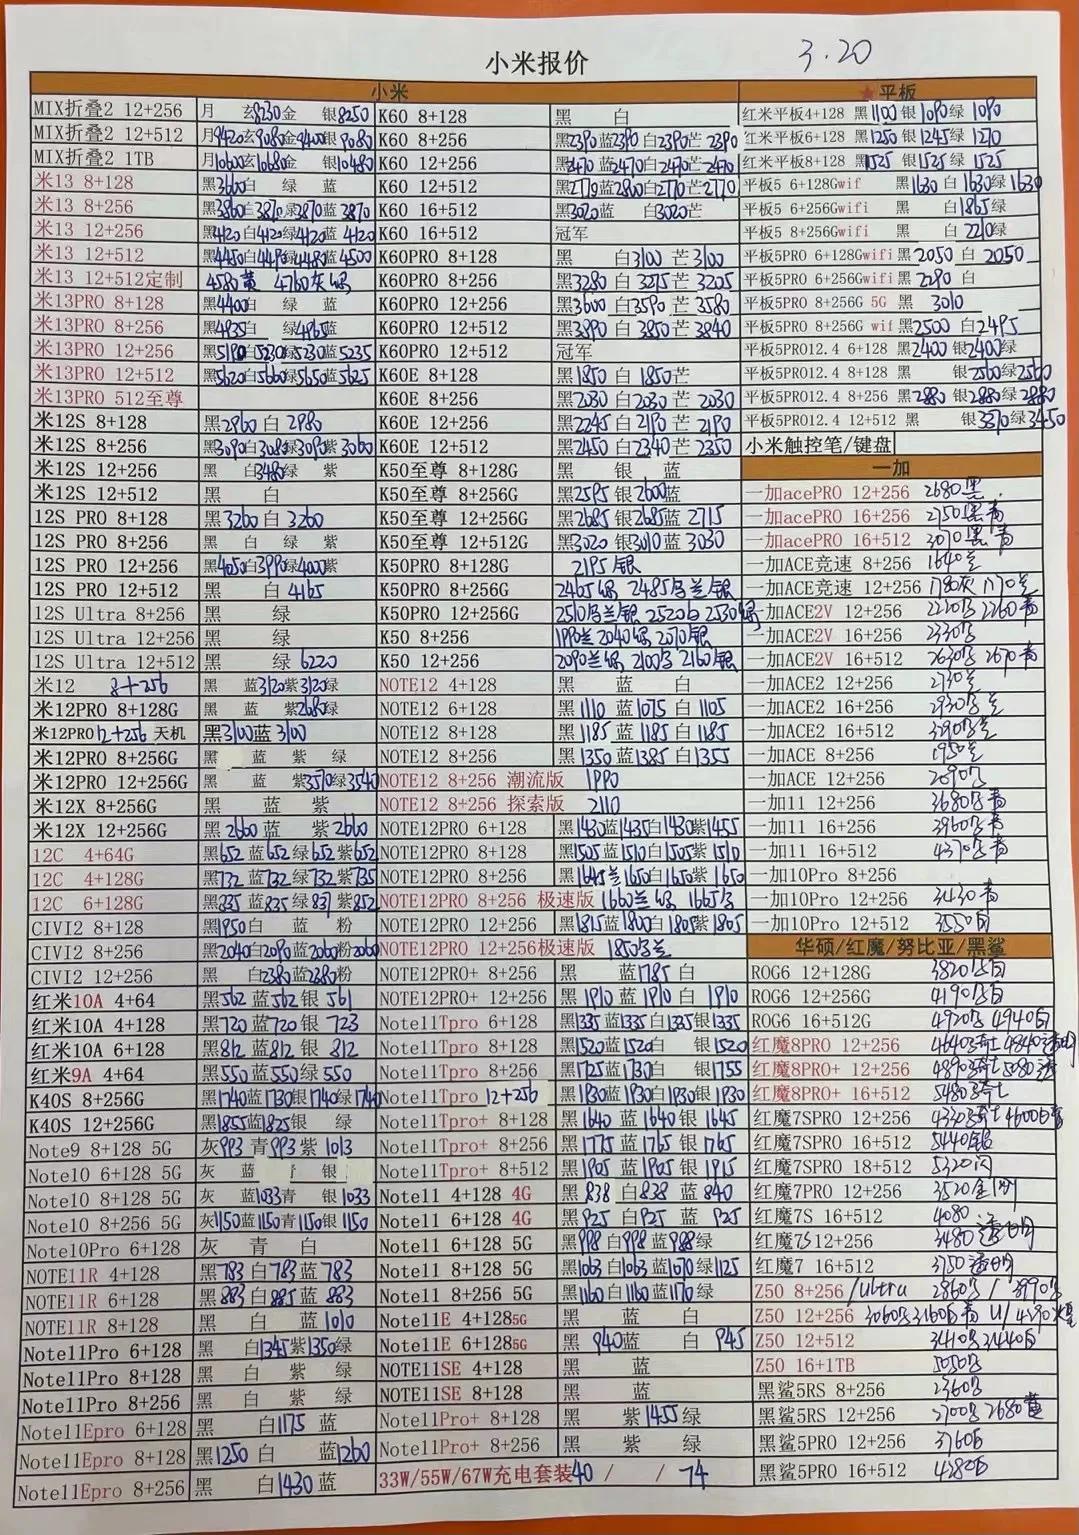 小米报价 3.20
小米
MIX折叠2 12+256 月 玄8230金 银8250
MIX折叠2 12+512 月9420玄9080金9400银9080
MIX折叠2 1TB 月10600玄10680金 银10480
米13 8+128 黑3660白 绿 蓝
米13 8+256 黑3860白3870绿3870蓝3870
米13 12+256 黑4120白4120绿4120蓝4120
米13 12+512 黑4450白4490绿4480蓝4500
米13 12+512定制 4580黄 4760灰
米13PRO 8+128 黑4400白 绿 蓝
米13PRO 8+256 黑4935白 绿4965蓝
米13PRO 12+256 黑5190白5230绿5230蓝5235
米13PRO 12+512 黑5620白5660绿5650蓝5625
米13PRO 512至尊
米12S 8+128 黑2960白 2980
米12S 8+256 黑3090白3085绿3090紫3060
米12S 12+256 黑 白3480绿 紫
米12S 12+512 黑 白
12S PRO 8+128 黑3260白 3260
12S PRO 8+256 黑 白 绿 紫
12S PRO 12+256 黑4050白3990绿4000紫
12S PRO 12+512 黑 白 4165
12S Ultra 8+256 黑 绿
12S Ultra 12+256 黑 绿
12S Ultra 12+512 黑 绿 6220
米12 8+256 黑 蓝3120紫3120绿
米12PRO 8+128G 黑 蓝 紫2680绿
米12PRO 12+256 天机 黑3100蓝3100
米12PRO 8+256G 黑 蓝 紫 绿
米12PRO 12+256G 黑 蓝 紫3570绿3540
米12X 8+256G 黑 蓝 紫
米12X 12+256G 黑2660 蓝 紫2660
12C 4+64G 黑652 蓝652 绿652紫652
12C 4+128G 黑732 蓝732 绿732紫735
12C 6+128G 黑835 蓝835 绿831紫852
CIVI2 8+128 黑1950白 蓝 粉
CIVI2 8+256 黑2040白2090蓝2060粉2060
CIVI2 12+256 黑 白2380蓝2380粉
红米10A 4+64 黑562 蓝562 银 561
红米10A 4+128 黑720 蓝720 银 723
红米10A 6+128 黑812 蓝812 银 812
红米9A 4+64 黑550 蓝550 绿 550
K40S 8+256G 黑1740蓝1730银1740绿1740
K40S 12+256G 黑1855蓝1825银 绿
Note9 8+128 5G 灰993 青993 紫 1013
Note10 6+128 5G 灰 蓝 银
Note10 8+128 5G 灰 蓝1033青 银1033
Note10 8+256 5G 灰1150蓝1150青1150银1150
Note10Pro 6+128 灰 青 白
NOTE11R 4+128 黑783 白783 蓝 783
NOTE11R 6+128 黑883 白885 蓝 883
NOTE11R 8+128 黑 白 蓝1010
Note11Pro 6+128 黑 白1345紫1350绿
Note11Pro 8+128 黑 白 紫 绿
Note11Pro 8+256 黑 白 紫 绿
Note11Epro 6+128 黑 白1175 蓝
Note11Epro 8+128 黑1250 白 蓝1260
Note11Epro 8+256 黑 白1430 蓝
K60 8+128 黑 白
K60 8+256 黑2390蓝2390白2390芒2390
K60 12+256 黑2470蓝2470白2470芒2470
K60 12+512 黑2770蓝2800白2770芒2770
K60 16+512 黑3020蓝 白3020芒
K60 16+512 冠军
K60PRO 8+128 黑 白3100 芒3100
K60PRO 8+256 黑3280 白3275 芒3205
K60PRO 12+256 黑3600 白3590 芒3580
K60PRO 12+512 黑3890 白3850 芒3840
K60PRO 12+512 冠军
K60E 8+128 黑1850 白 1850芒
K60E 8+256 黑2030 白2030 芒 2030
K60E 12+256 黑2245 白2190 芒 2190
K60E 12+512 黑2450 白2340 芒 2350
K50至尊 8+128G 黑 银 蓝
K50至尊 8+256G 黑2595 银2600蓝
K50至尊 12+256G 黑2685 银2685蓝 2715
K50至尊 12+512G 黑3020 银3010蓝 3030
K50PRO 8+128G 2195银
K50PRO 8+256G 2465 2485乌兰银
K50PRO 12+256G 2510乌兰银 2520白 2530
K50 8+256 1990兰 2040 2070银
K50 12+256 2090兰 2100 2160银
NOTE12 4+128 黑 蓝 白
NOTE12 6+128 黑1110 蓝1075 白 1105
NOTE12 8+128 黑1185 蓝1185 白 1185
NOTE12 8+256 黑1350 蓝1385 白 1355
NOTE12 8+256 潮流版 1990
NOTE12 8+256 探索版 2110
NOTE12PRO 6+128 黑1430蓝1435白1430紫1455
NOTE12PRO 8+128 黑1505蓝1510白1505紫1510
NOTE12PRO 8+128 黑1645兰1650白1650紫1650
NOTE12PRO 8+256 极速版 1660兰 1665
NOTE12PRO 12+256 黑1815蓝1800白1805紫1805
NOTE12PRO 12+256极速版 1850
NOTE12PRO+ 8+256 黑 蓝1785 白
NOTE12PRO+ 12+256 黑 1910 蓝1910 白 1910
Note11Tpro 6+128 黑1335蓝1335白1335银1335
Note11Tpro 8+128 黑1520蓝1520白 银1520
Note11Tpro 8+256 黑1725蓝1730白 银1755
Note11Tpro 12+256 黑1930蓝1930白1930银1930
Note11Tpro+ 8+128 黑1640 蓝1640 银 1645
Note11Tpro+ 8+256 黑1775 蓝1765 银 1765
Note11Tpro+ 8+512 黑1905 蓝1905 银 1915
Note11 4+128 4G 黑838 白838 蓝 840
Note11 6+128 4G 黑925 白925 蓝 925
Note11 6+128 5G 黑998白998蓝988绿
Note11 8+128 5G 黑1063白1063蓝1070绿1125
Note11 8+256 5G 黑1160白1160蓝1170绿
Note11E 4+1285G 黑 蓝 白
Note11E 6+1285G 黑940蓝 白 945
NOTE11SE 4+128 黑 蓝
NOTE11SE 8+128 黑 蓝
Note11Pro+ 8+128 黑 紫1455绿
Note11Pro+ 8+256 黑 紫 绿
33W/55W/67W充电套装40 / / 74
★平板
红米平板4+128 黑1100 银1090绿 1090
红米平板6+128 黑1250 银1245绿 1270
红米平板8+128 黑1525 银1525绿 1525
平板5 6+128Gwif 黑1630 白1630绿1630
平板5 6+256Gwifi 黑 白1865绿
平板5 8+256Gwifi 黑 白2210绿
平板5PRO 6+128Gwifi黑2050 白 2050
平板5PRO 6+256Gwifi黑2290 白
平板5PRO 8+256G 5G 黑 3010
平板5PRO 8+256G wif黑2500 白2495
平板5PRO12.4 6+128 黑2400 银2400绿
平板5PRO12.4 8+128 黑 银2560绿2560
平板5PRO12.4 8+256 黑2880 银2880绿2880
平板5PRO12.4 12+512 黑 银3370绿3450
小米触控笔/键盘
一加
一加acePRO 12+256 2680黑
一加acePRO 16+256 2750黑青
一加acePRO 16+512 3070黑青
一加ACE竞速 8+256 1640兰
一加ACE竞速 12+256 1780灰 1770兰
一加ACE2V 12+256 2220 2260青
一加ACE2V 16+256 2330
一加ACE2V 16+512 2630 2670青
一加ACE2 12+256 2730兰
一加ACE2 16+256 2930 兰
一加ACE2 16+512 3290 兰
一加ACE 8+256 1950兰
一加ACE 12+256 2090
一加11 12+256 3680 青
一加11 16+256 3960 青
一加11 16+512 4370 青
一加10Pro 8+256
一加10Pro 12+256 3430青
一加10Pro 12+512 3550白
华硕/红魔/努比亚/黑鲨
ROG6 12+128G 3820 白
ROG6 12+256G 4190 白
ROG6 16+512G 4920 4940白
红魔8PRO 12+256 4640骑士 4840透明
红魔8PRO+ 12+256 4890骑士 5080透
红魔8PRO+ 16+512 5480骑士
红魔7SPRO 12+256 4330骑士 4600
红魔7SPRO 16+512 5440银
红魔7SPRO 18+512 5320闪
红魔7PRO 12+256 3520金刚
红魔7S 16+512 4080
红魔7S12+256 3480透明
红魔7 16+512 3750透明
Z50 8+256 /Ultra 2860 / 3990
Z50 12+256 3060 3160 青 U/4290
Z50 12+512 3410 3440白
Z50 16+1TB 5050
黑鲨5RS 8+256 2360
黑鲨5RS 12+256 2700 2680蓝
黑鲨5PRO 12+256 3760白
黑鲨5PRO 16+512 4280白